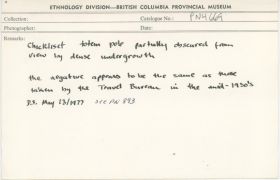 ETHNOLOGY DIVISION—BRITISH COLUMBIA PROVINCIAL MUSEUM
Collection: Catalogue No.: PN4669
Photographer: Date:
Remarks:
Checkliset totem pole partially obscured from
view by dense undergrowth
the negative appears to be the same as those
taken by the Travel Bureau in the mid-1930's
P.S. May 13/1977 see PN 893